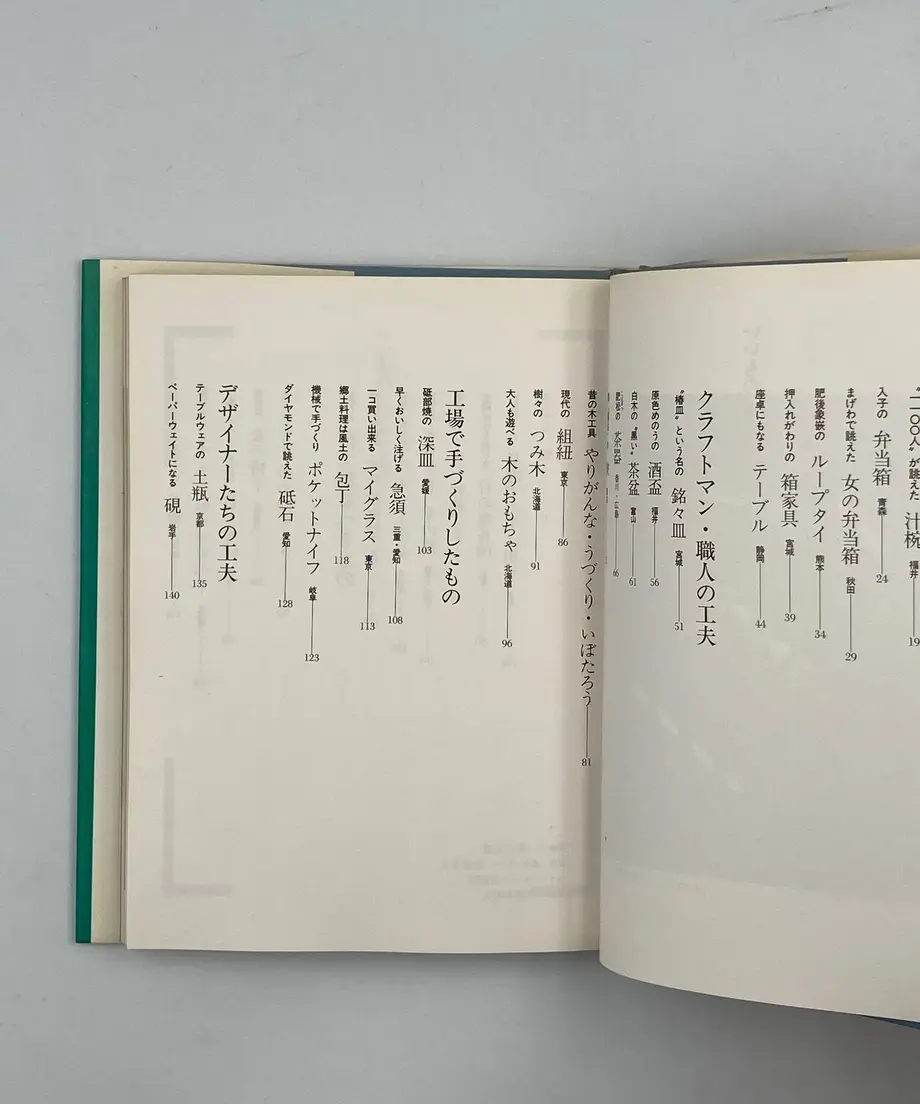 〝一〇〇人〟が誂えた 汁椀 福井 19
入子の 弁当箱 青森 24
まげわで誂えた 女の弁当箱 秋田 29
肥後象嵌の ループタイ 熊本 34
押入れがわりの 箱家具 宮城 39
座卓にもなる テーブル 静岡 44
クラフトマン・職人の工夫
〝椿皿〟という名の 銘々皿 宮城 51
原色めのうの 酒盃 福井 56
白木の〝黒い〟 茶盆 富山 61
肥松の 茶器 香川・広島 66
昔の木工具 やりがんな・うづくり・いぼたろう 81
現代の 組紐 東京 86
樹々の つみ木 北海道 91
大人も遊べる 木のおもちゃ 北海道 96
工場で手づくりしたもの
砥部焼の 深皿 愛媛 103
早くおいしく注げる 急須 三重・愛知 108
一コ買い出来る マイグラス 東京 113
郷土料理は風土の 包丁 118
機械で手づくり ポケットナイフ 岐阜 123
ダイヤモンドで誂えた 砥石 愛知 128
デザイナーたちの工夫
テーブルウェアの 土瓶 京都 135
ペーパーウェイトになる 硯 岩手 140